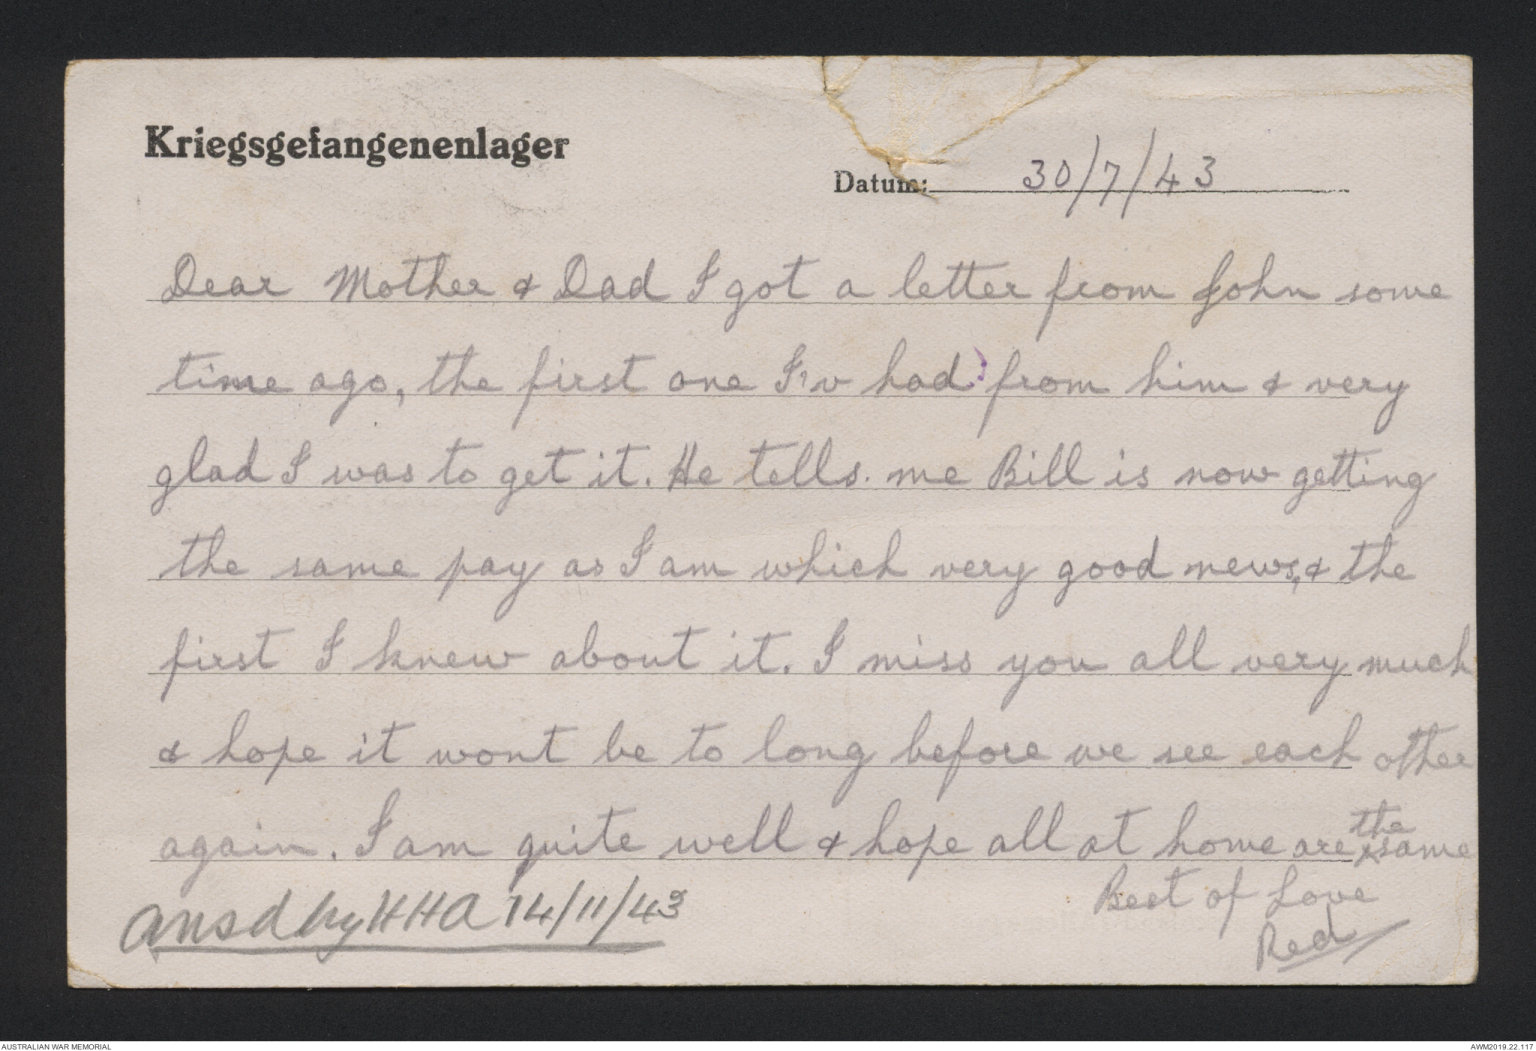 Kriegsgefangenenlager
Datum: 30/7/43
Dear Mother & Dad I got a letter from John some
time ago, the first one I'v had from him & very
glad I was to get it. He tells me Bill is now getting
the same pay as I am which very good news, & the
first I knew about it. I miss you all very much
& hope it wont be to long before we see each other
again. I am quite well & hope all at home are the same
Best of Love
Red
Ansd by HHA 14/11/43
AUSTRALIAN WAR MEMORIAL
AWM2019.22.117